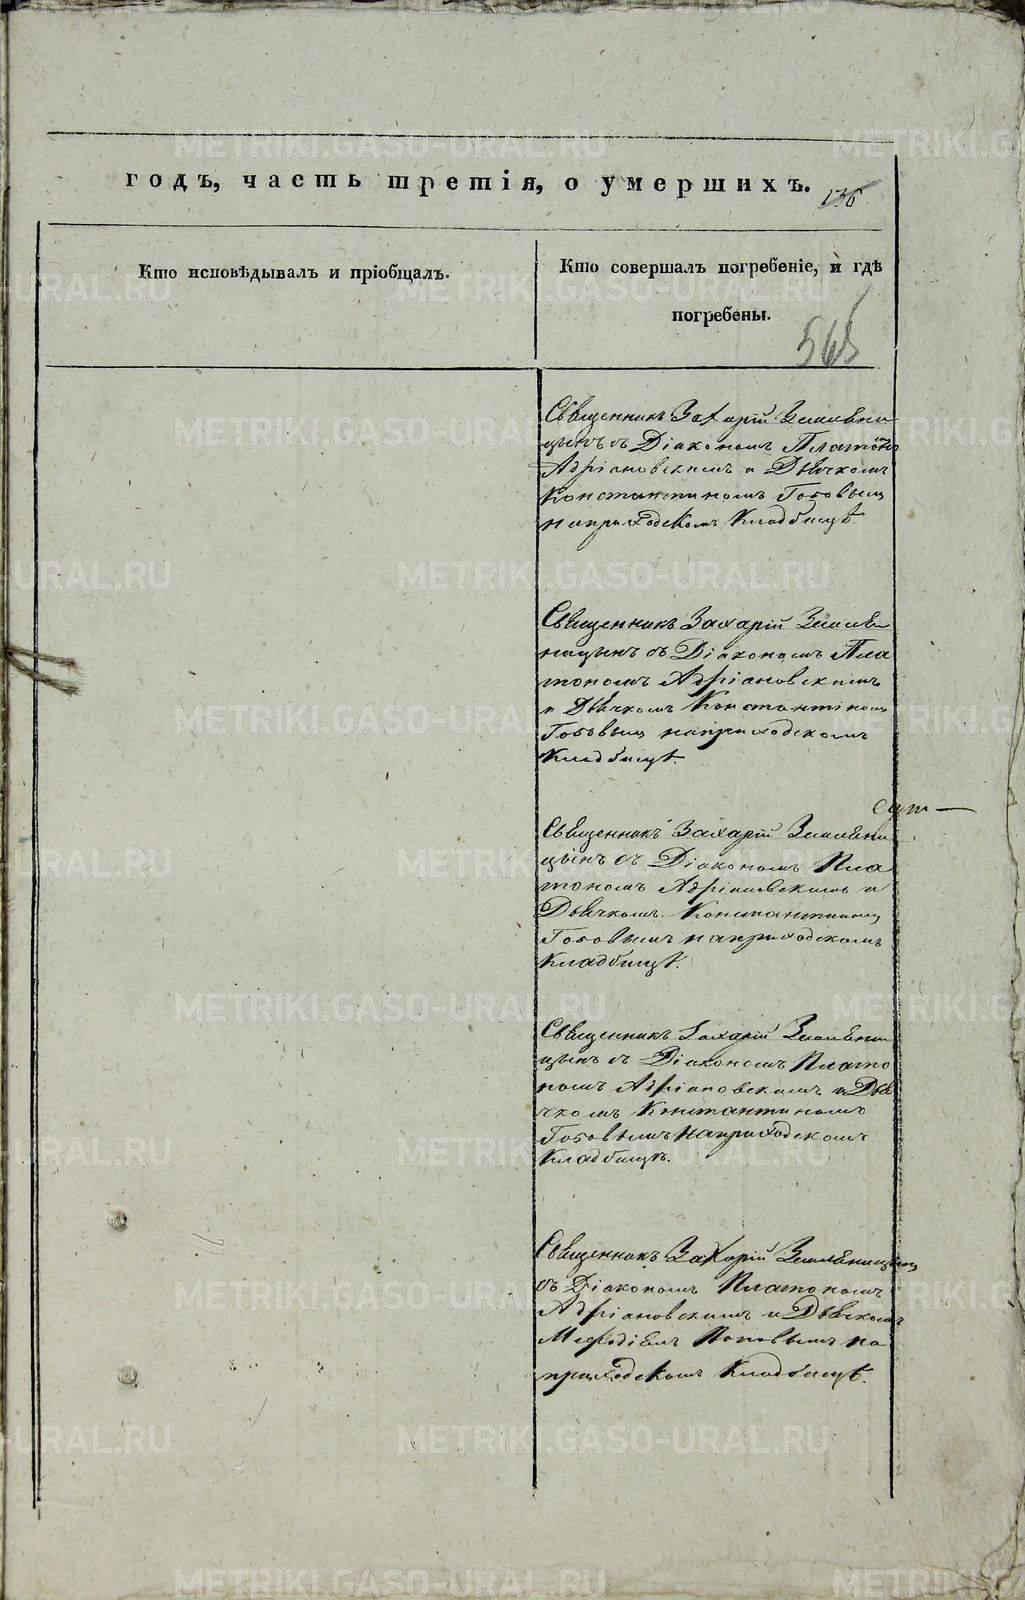 годъ, часть третія, о умершихъ.
136
Кто исповѣдывалъ и пріобщалъ.
Кто совершалъ погребеніе, и гдѣ
погребены.
565
Священникъ Захарій Земляни
цынъ съ Діакономъ Платономъ
Адріановскимъ и Дьячкомъ
Константиномъ
на приходскомъ Кладбищѣ.
Священникъ Захарій Земля
ницынъ съ Діакономъ Пла
тономъ Адріановскимъ
и Дьячкомъ Константіномъ
на приходскомъ
Кладбищѣ.
Священникъ Захарій Земляни
цынъ съ Діакономъ Пла
тономъ Адріановскимъ и
Дьячкомъ Константиномъ
на приходскомъ
Кладбищѣ.
Священникъ Захарій Земляни
цынъ съ Діакономъ Плато
номъ Адріановскимъ и Дья
чкомъ Константиномъ
на приходскомъ
Кладбищѣ.
Священникъ Захарій Земляницынъ
съ Діакономъ Платономъ
Адріановскимъ и Дьячкомъ
Мефодіемъ Поповымъ на
приходскомъ Кладбищѣ.
METRIKI.GASO-URAL.RU